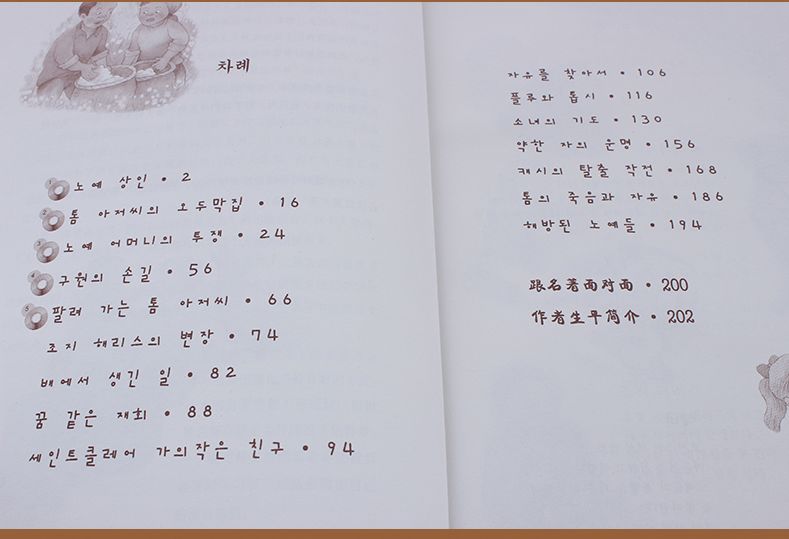 차례
1 노예 상인 • 2
2 톰 아저씨의 오두막집 • 16
3 노예 어머니의 투쟁 • 24
4 구원의 손길 • 56
5 팔려 가는 톰 아저씨 • 66
조지 해리스의 변장 • 74
배에서 생긴 일 • 82
꿈 같은 재회 • 88
세인트클레어 가의 작은 친구 • 94
자유를 찾아서 • 106
플루와 톱시 • 116
소녀의 기도 • 130
약한 자의 운명 • 156
캐시의 탈출 작전 • 168
톰의 죽음과 자유 • 186
해방된 노예들 • 194
跟名著面对面 • 200
作者生平简介 • 202